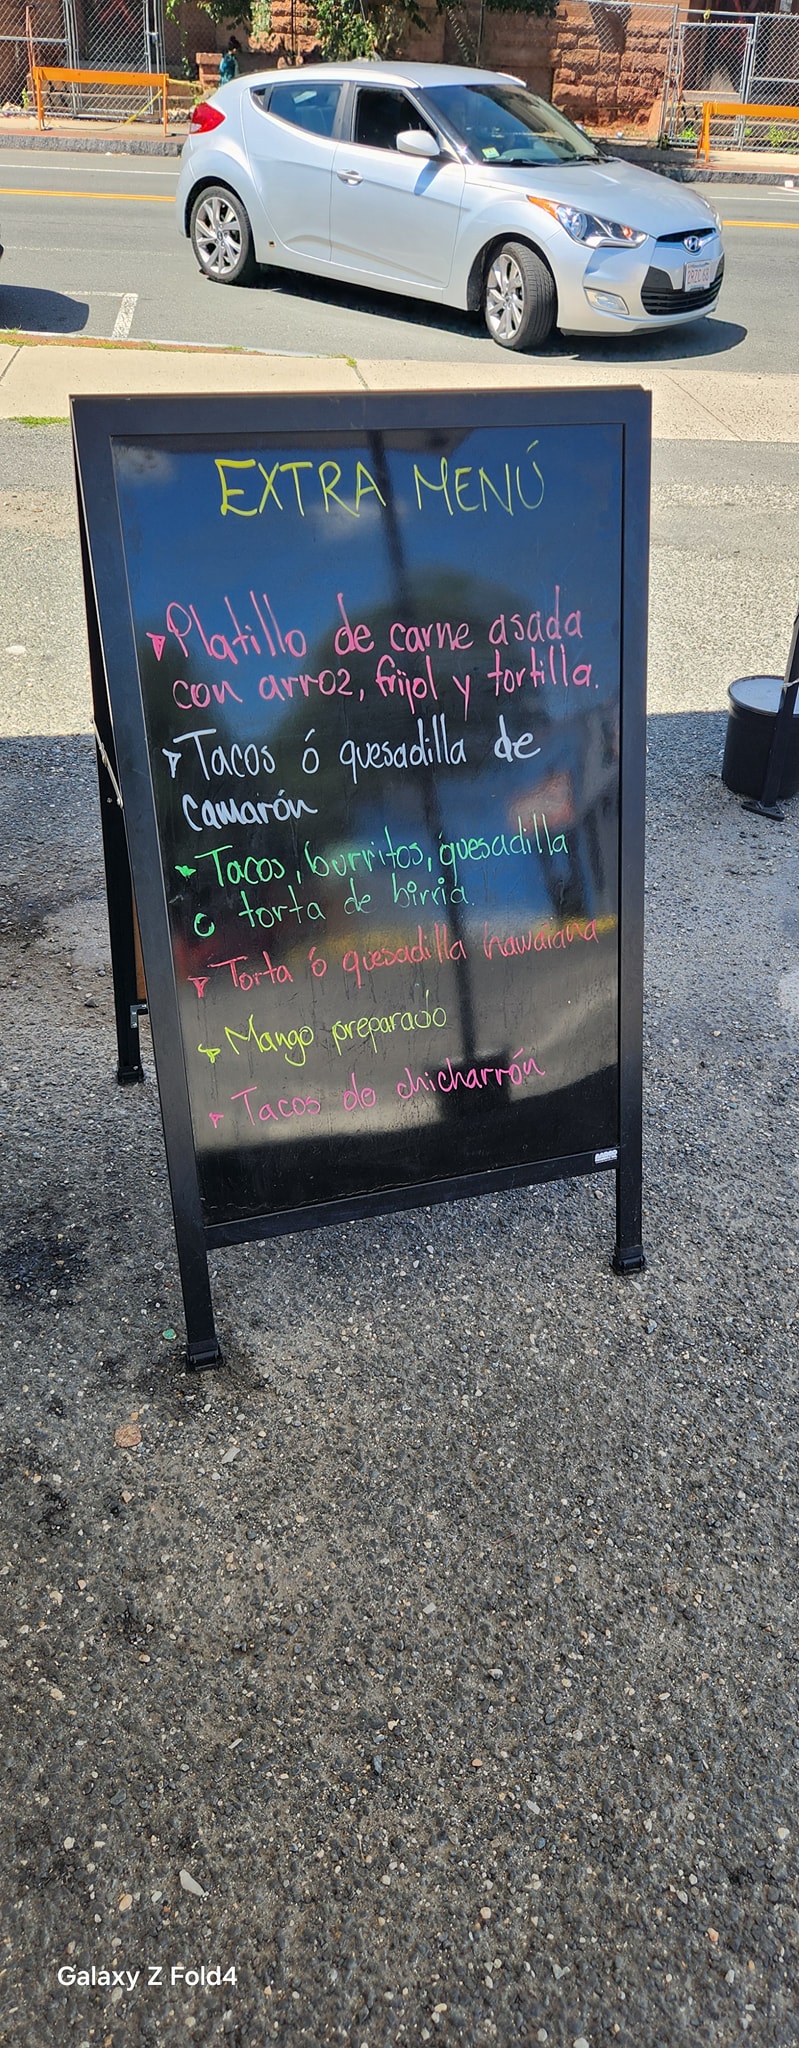 EXTRA MENÚ
Platillo de carne asada
con arroz, frijol y tortilla.
Tacos ó quesadilla de
Camarón
Tacos, burritos, quesadilla
o torta de birria.
Torta ó quesadilla hawaiana
Mango preparado
Tacos de chicharrón
Galaxy Z Fold4